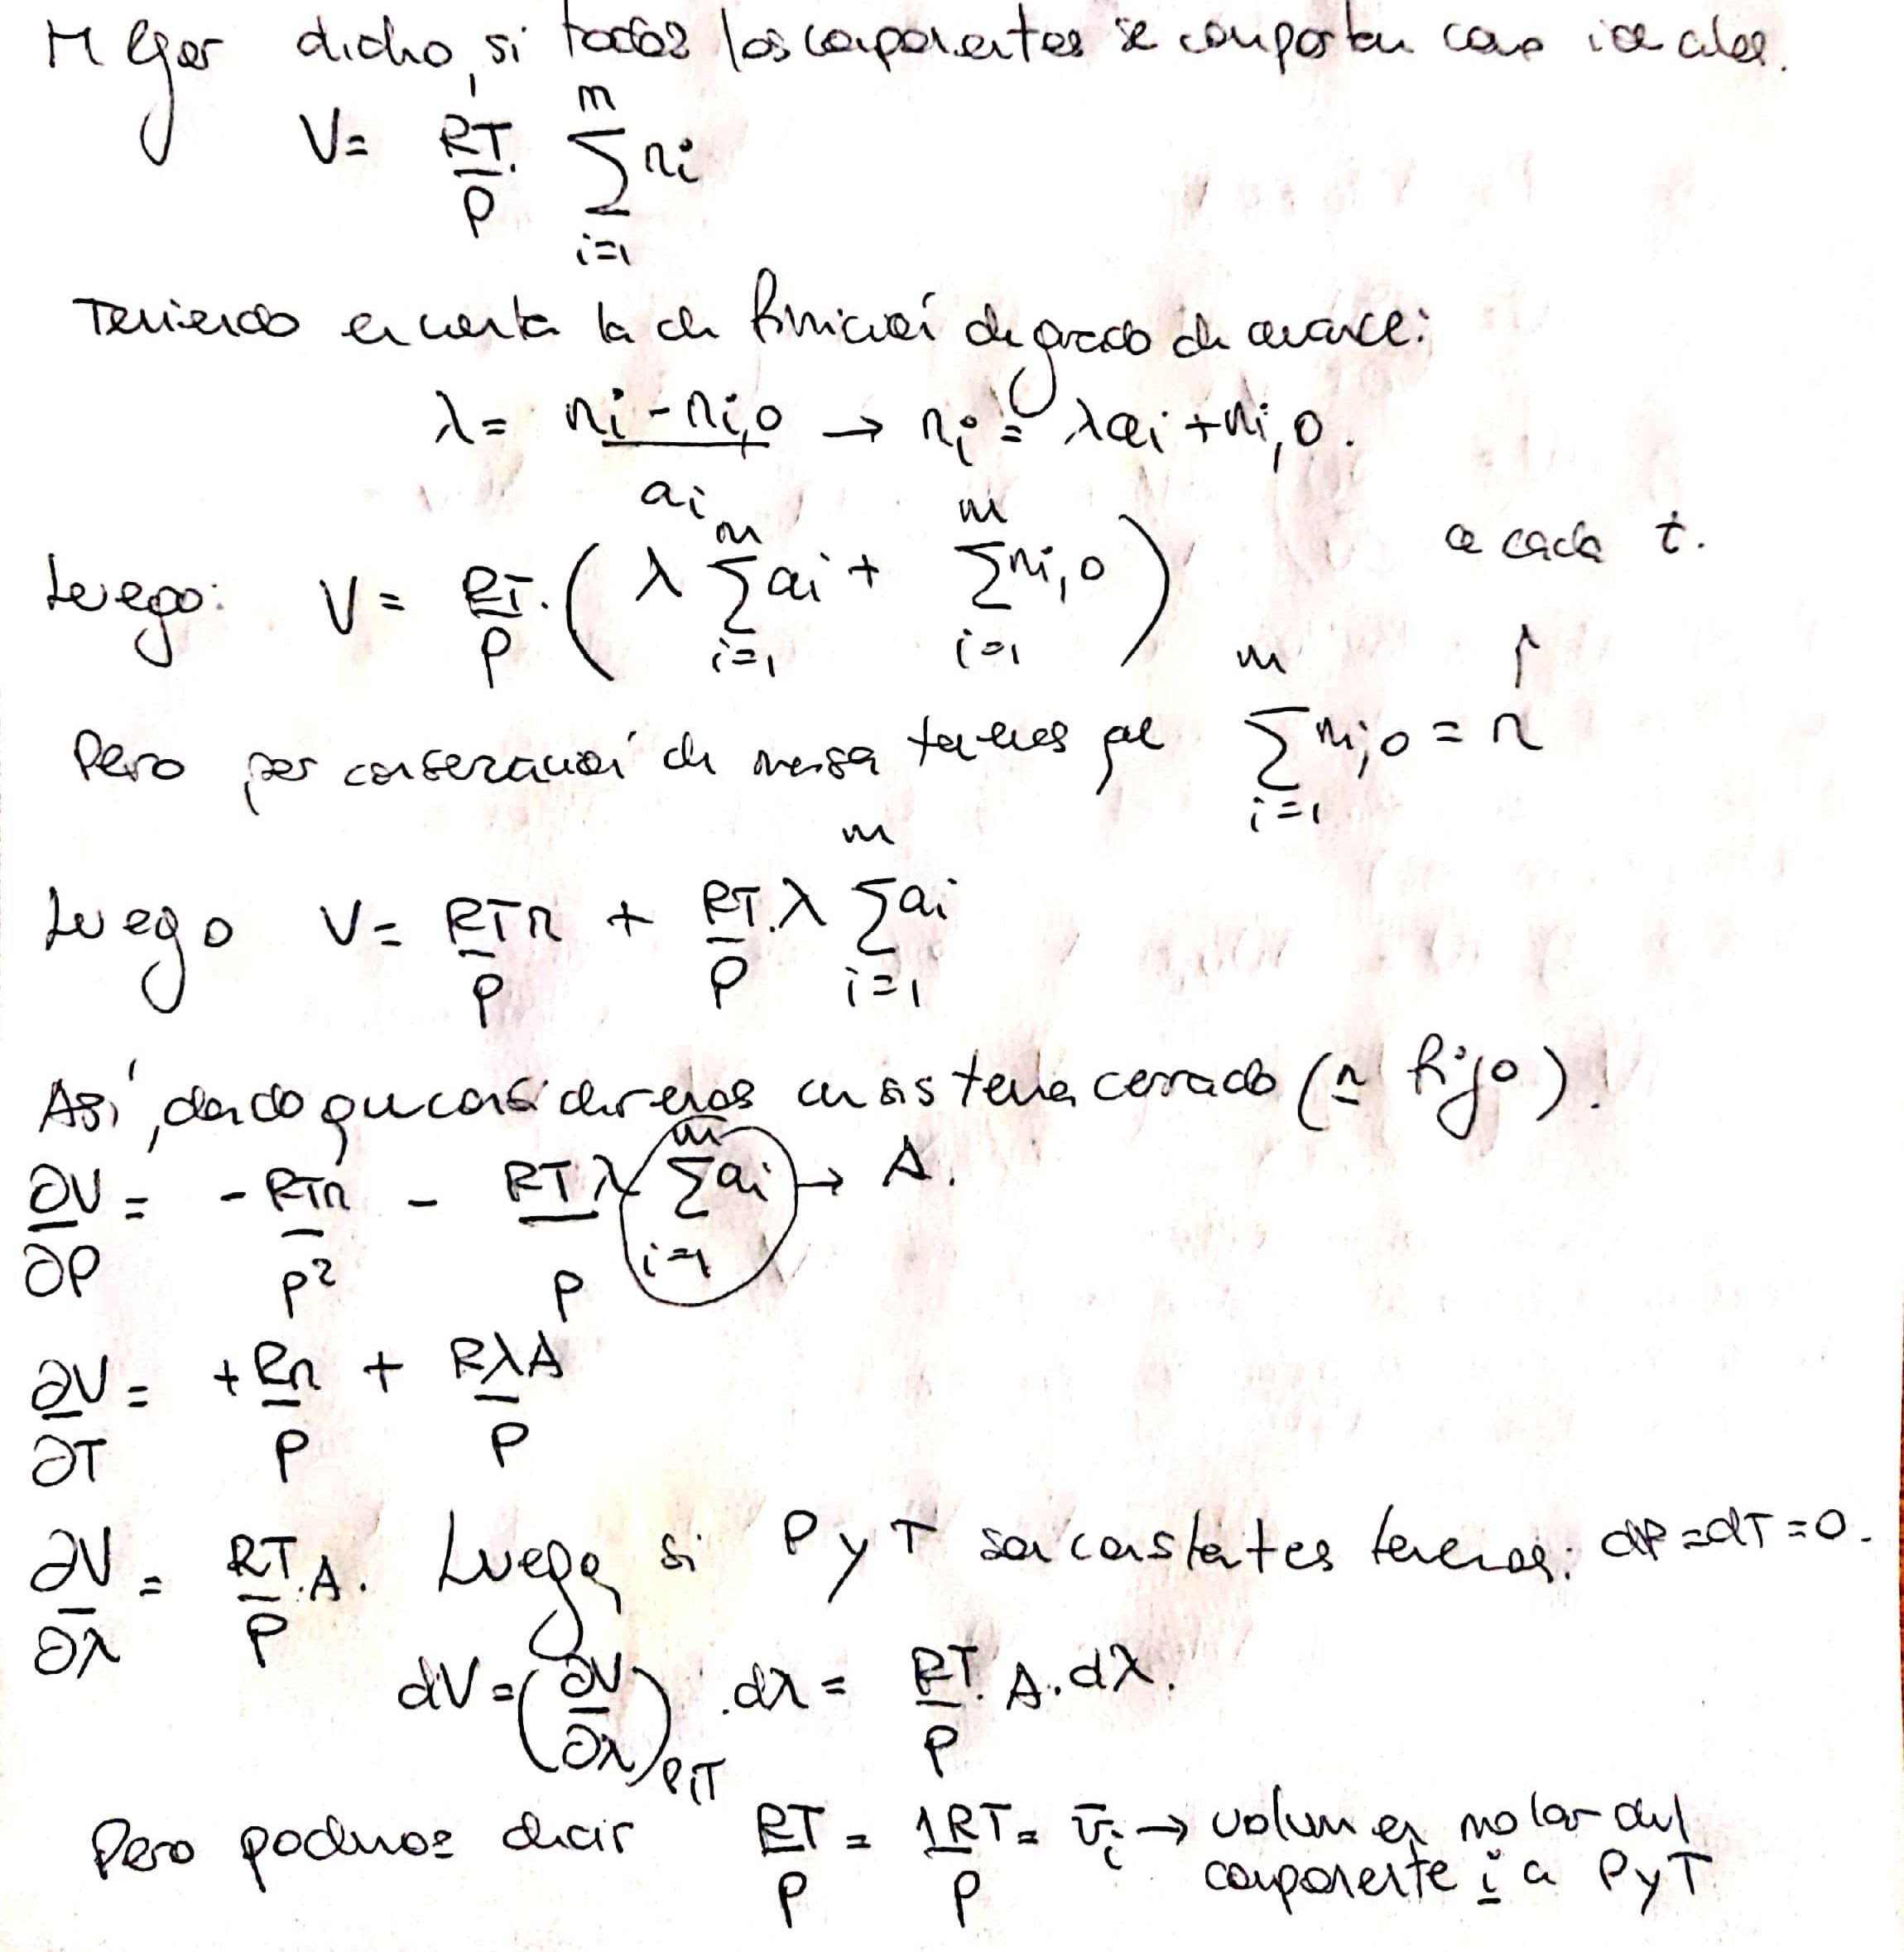 Mejor dicho, si todos los componentes se comportan como ideales.
V = RT/P · ∑_{i=1}^{m} ni
Teniendo en cuenta la definición de grado de avance:
λ = (ni - ni,0)/ai → ni = λai + ni,0.
Luego: V = RT/P · (λ ∑_{i=1}^{m} ai + ∑_{i=1}^{m} ni,0)
a cada t.
↑
Pero por conservación de masa tenemos que ∑_{i=1}^{m} ni,0 = n
Luego V = RTn/P + RT/P · λ ∑_{i=1}^{m} ai
Así, dado que consideremos un sistema cerrado (n fijo).
∂V/∂P = - RTn/P² - RTλ/P ∑_{i=1}^{m} ai → A.
∂V/∂T = + Rn/P + RλA/P
∂V/∂λ = RT/P · A. Luego si P y T son constantes tenemos: dP = dT = 0.
dV = (∂V/∂λ)_{P,T} · dλ = RT/P · A · dλ.
Pero podemos decir RT/P = 1RT/P = v̄i → volumen molar del
componente i a P y T